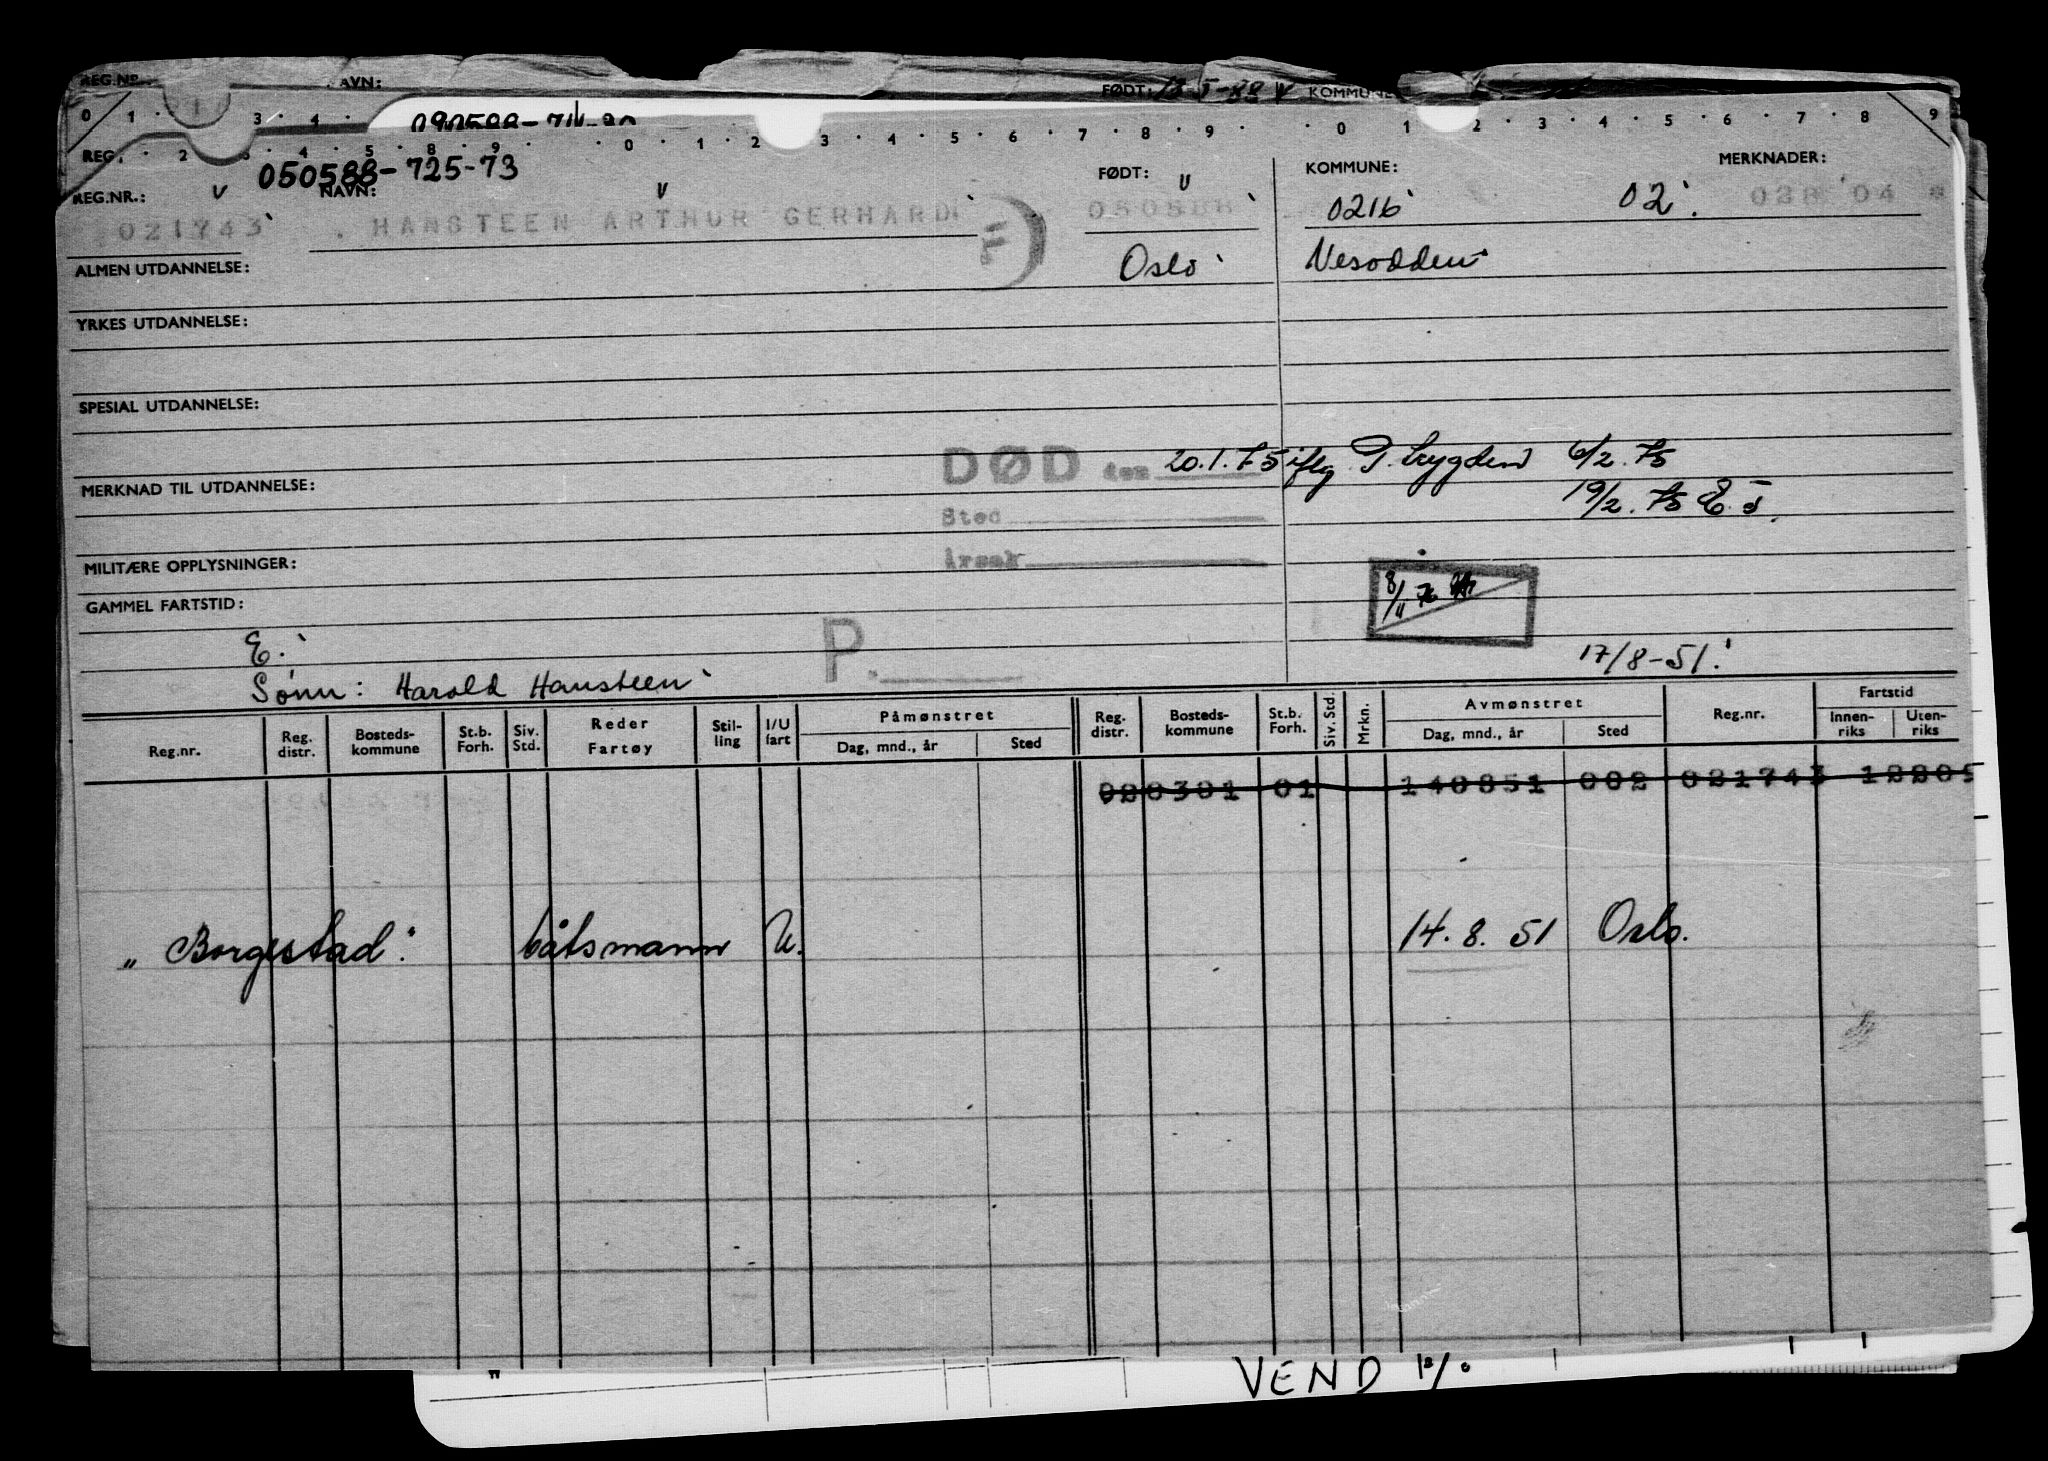 REG.NR. NAVN: FØDT: 13-5-88 V KOMMUNE:
0 1 3 4
090588-711-80
0 1 2 3 4 5 6 7 8 9 0 1 2 3 4 5 6 7 8 9
REG. 2 3 4 5 8 9
050588-725-73
REG.NR.: V NAVN: V FØDT: V KOMMUNE: MERKNADER:
021743 HANSTEEN ARTHUR GERHARD 050588 0216 02. 028 04 *
ALMEN UTDANNELSE: Oslo Nesodden
YRKES UTDANNELSE:
SPESIAL UTDANNELSE:
DØD den 20.1.75 iflg. P. trygden 6/2.75
MERKNAD TIL UTDANNELSE:
Sted 19/2.75 E.J.
Årsak
MILITÆRE OPPLYSNINGER:
8/11 76
GAMMEL FARTSTID:
E. P. 17/8-51.
Sønn: Harold Hansteen
Reg.nr. Reg. distr. Bosteds-kommune St.b. Forh. Siv. Std. Reder Fartøy Stil-ling I/U fart Påmønstret Dag, mnd., år Sted Reg. distr. Bosteds-kommune St.b. Forh. Siv. Std. Mrkn. Avmønstret Dag, mnd., år Sted Reg.nr. Fartstid Innen-riks Uten-riks
020301 01 140851 002 021743 12205
"Borgestad". båtsmann U. 14.8.51 Oslo.
VEND